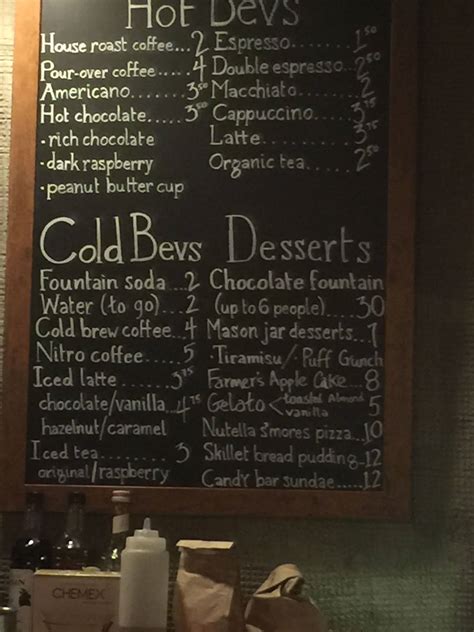 Hot Bevs
House roast coffee...2
Pour-over coffee.....4
Americano........3.50
Hot chocolate.....3.50
• rich chocolate
• dark raspberry
• peanut butter cup
Espresso........1.50
Double espresso..2.50
Macchiato.......2
Cappuccino......3.75
Latte..........3.75
Organic tea.....2.50
Cold Bevs
Fountain soda...2
Water (to go)...2
Cold brew coffee..4
Nitro coffee.....5
Iced latte......3.75
chocolate/vanilla 4.75
hazelnut/caramel
Iced tea........3
original/raspberry
Desserts
Chocolate fountain
(up to 6 people)....30
Mason jar desserts..7
Tiramisu/Puff Crunch
Farmer's Apple Cake..8
Gelato < toasted Almond 5
vanilla
Nutella s'mores pizza..10
Skillet bread pudding..12
Candy bar sundae....12
CHEMEX